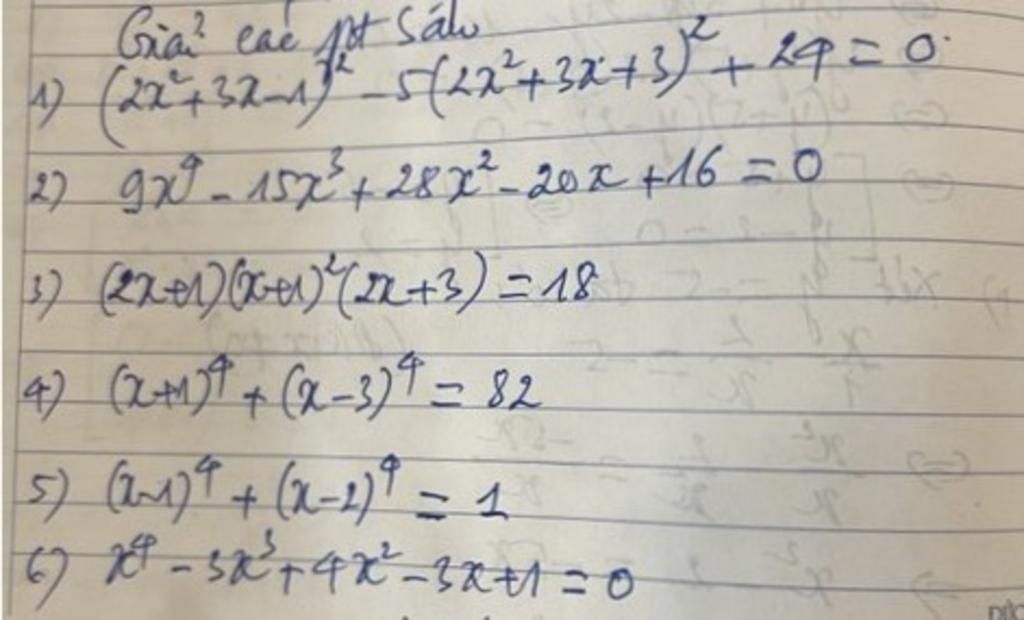 Giải các pt sau
1) (2x²+3x-1)² - 5(2x²+3x+3)² + 24 = 0
2) 9x⁴ - 15x³ + 28x² - 20x + 16 = 0
3) (2x+1)(x+1)²(2x+3) = 18
4) (x+1)⁴ + (x-3)⁴ = 82
5) (x-1)⁴ + (x-2)⁴ = 1
6) x⁴ - 3x³ + 4x² - 3x + 1 = 0